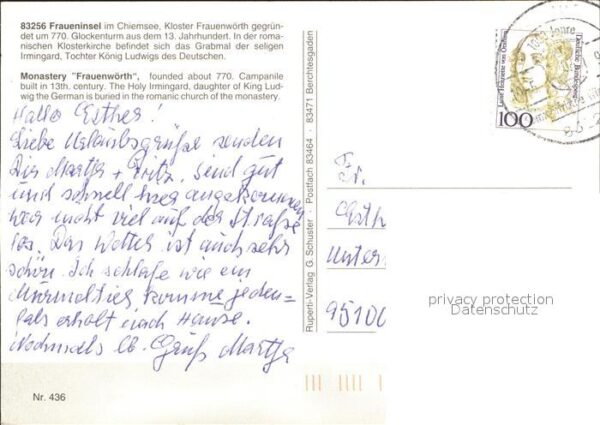 83256 Fraueninsel im Chiemsee, Kloster Frauenwörth gegrün-
det um 770. Glockenturm aus dem 13. Jahrhundert. In der roma-
nischen Klosterkirche befindet sich das Grabmal der seligen
Irmingard, Tochter König Ludwigs des Deutschen.
Monastery "Frauenwörth", founded about 770. Campanile
built in 13th. century. The Holy Irmingard, daughter of King Lud-
wig the German is buried in the romanic church of the monastery.
Hallo Esther!
Liebe Urlaubsgrüße senden
Dir Martha + Fritz. Sind gut
und schnell hier angekommen
war nicht viel auf der Straße
los. Das Wetter ist auch sehr
schön. Ich schlafe wie ein
Murmeltier, komme jeden=
falls erholt nach Hause.
Nochmals lb. Gruß Martha
Nr. 436
Ruperti-Verlag G. Schuster · Postfach 83464 · 83471 Berchtesgaden
Fr.
Esth
Unter
95100
privacy protection
Datenschutz
Deutsche Bundespost
100